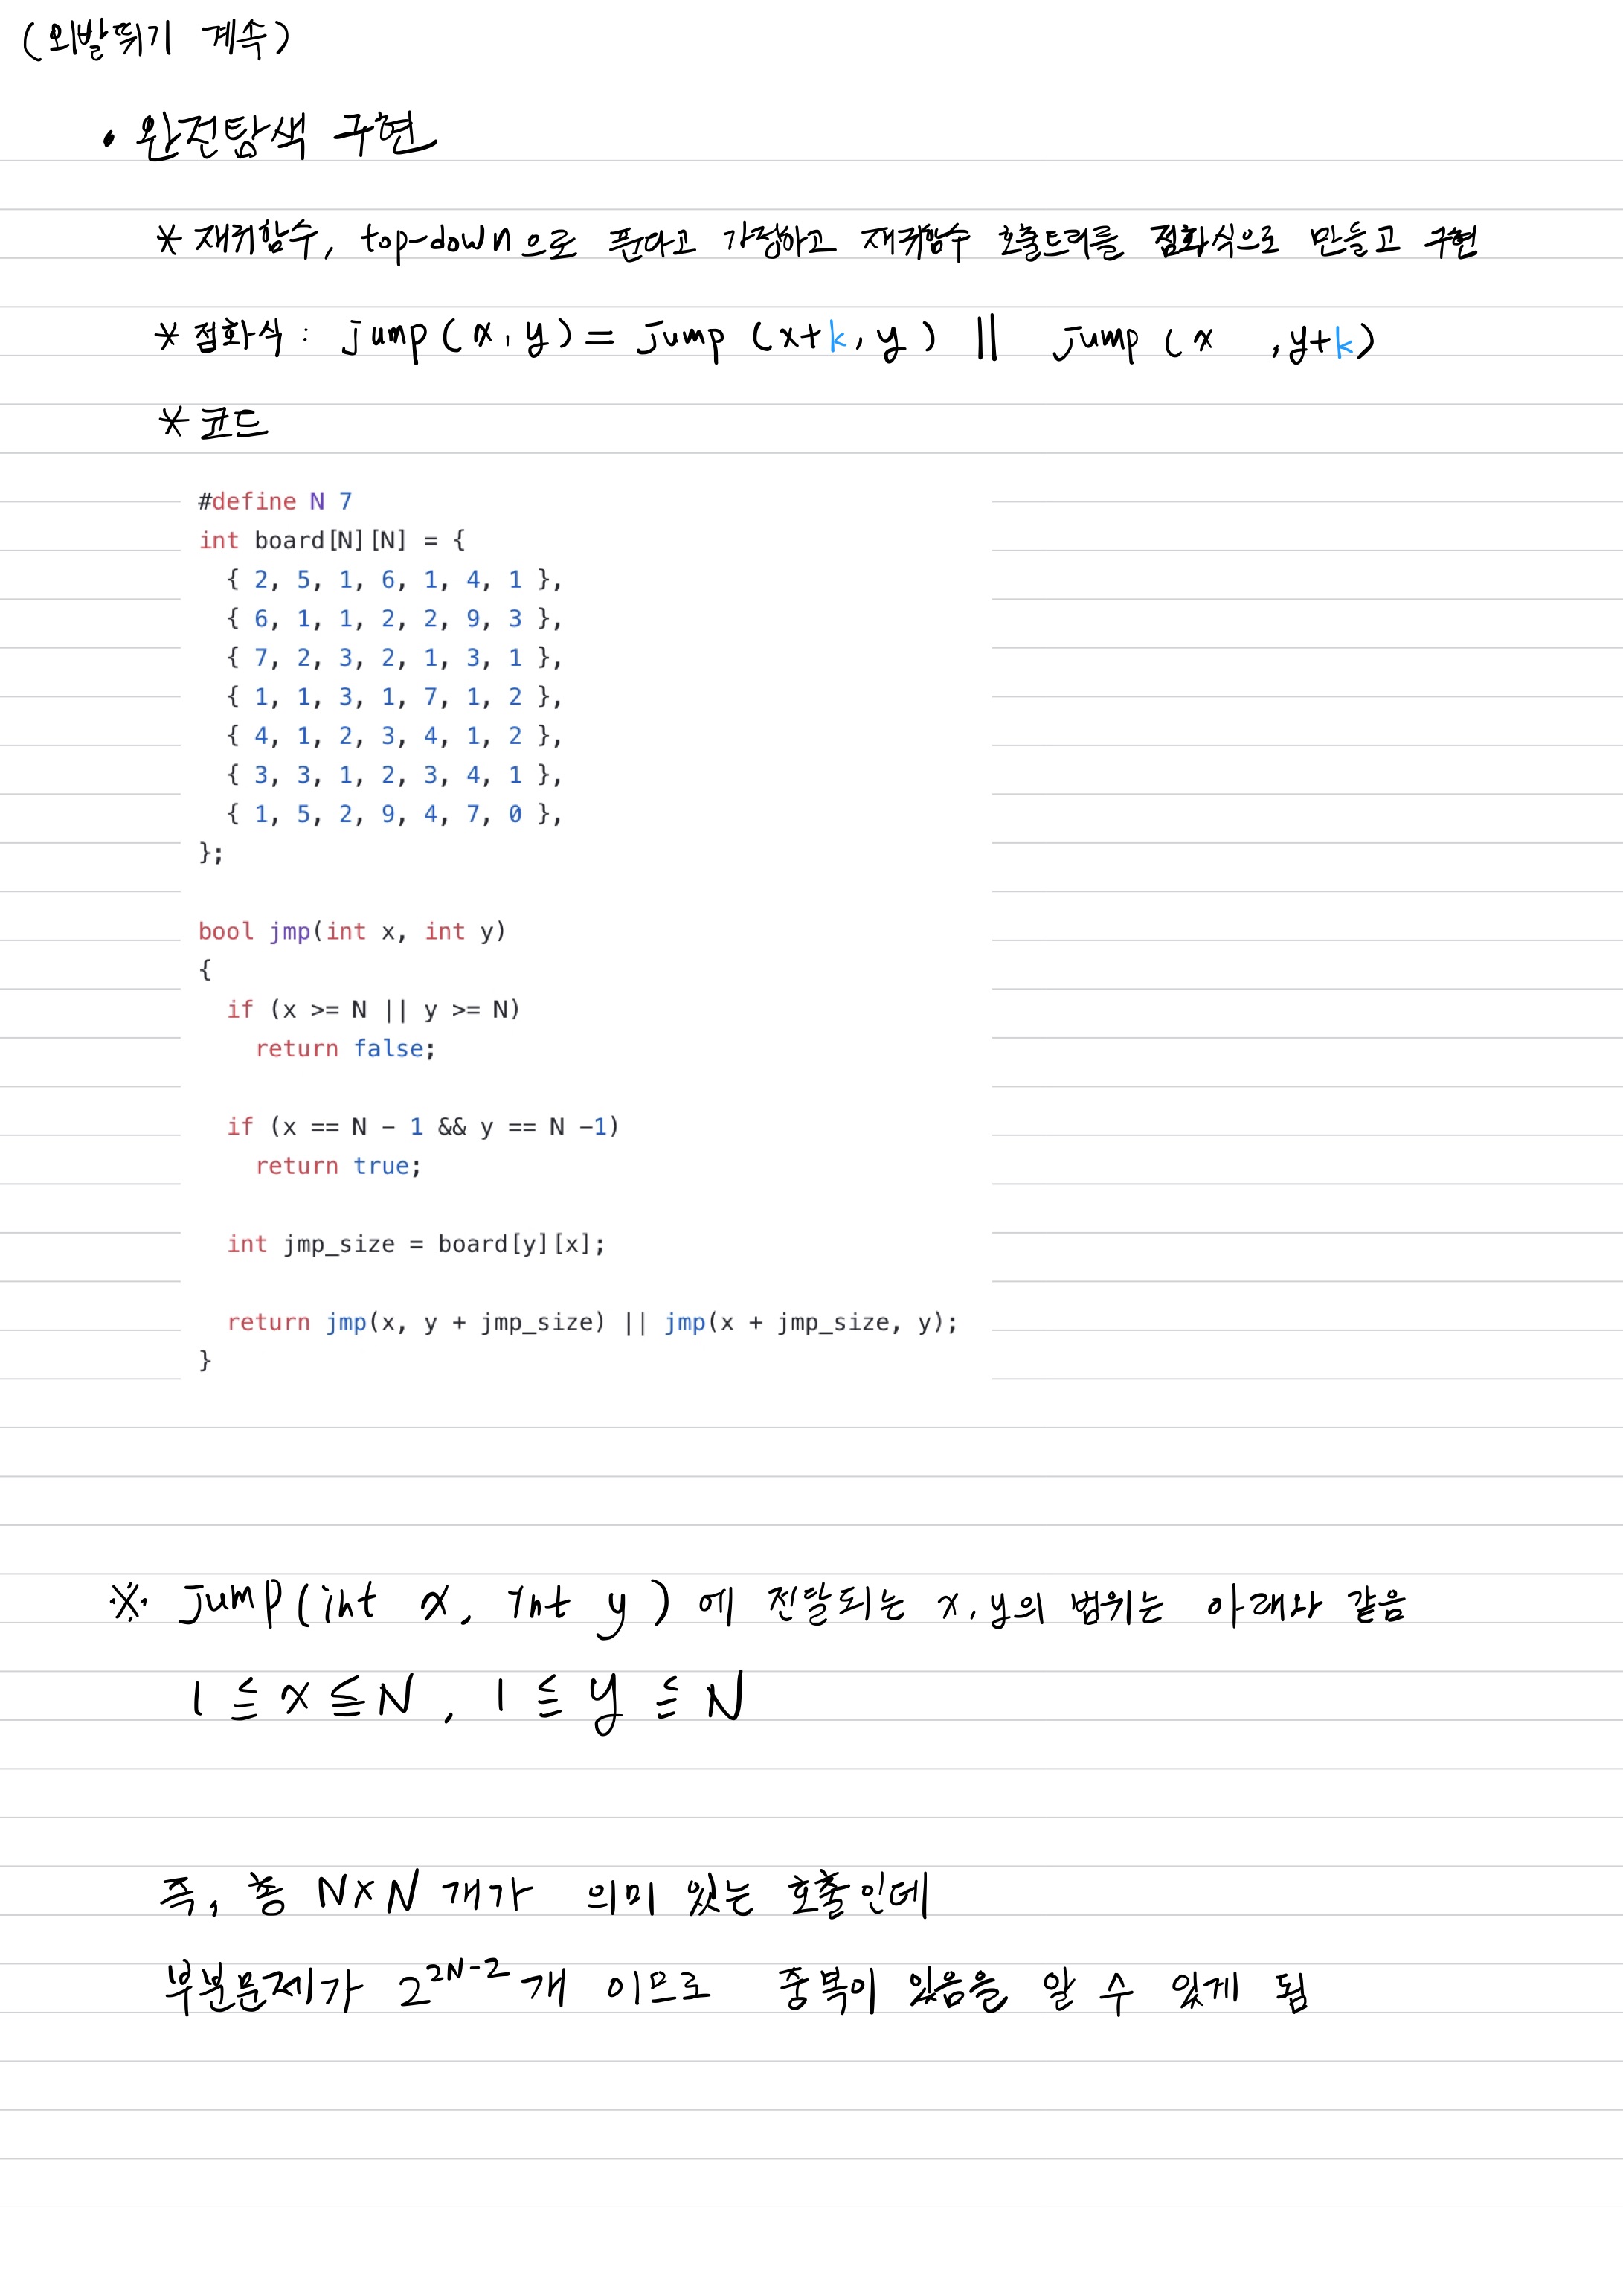 (외발뛰기 계속)
• 완전탐색 구현
* 재귀함수, top-down으로 푼다고 가정하고 재귀함수 호출트리를 점화식으로 만들고 구현
* 점화식 : jump(x, y) = jump (x+k, y) || jump (x , y+k)
* 코드
#define N 7
int board[N][N] = {
  { 2, 5, 1, 6, 1, 4, 1 },
  { 6, 1, 1, 2, 2, 9, 3 },
  { 7, 2, 3, 2, 1, 3, 1 },
  { 1, 1, 3, 1, 7, 1, 2 },
  { 4, 1, 2, 3, 4, 1, 2 },
  { 3, 3, 1, 2, 3, 4, 1 },
  { 1, 5, 2, 9, 4, 7, 0 },
};
bool jmp(int x, int y)
{
  if (x >= N || y >= N)
    return false;
  if (x == N - 1 && y == N -1)
    return true;
  int jmp_size = board[y][x];
  return jmp(x, y + jmp_size) || jmp(x + jmp_size, y);
}
※ jump(int x, int y) 에 전달되는 x, y의 범위는 아래와 같음
1 ≦ x ≦ N , 1 ≦ y ≦ N
즉, 총 N×N 개가 의미 있는 호출인데
부분문제가 2^{2N-2}개 이므로 중복이 있음을 알 수 있게 됨